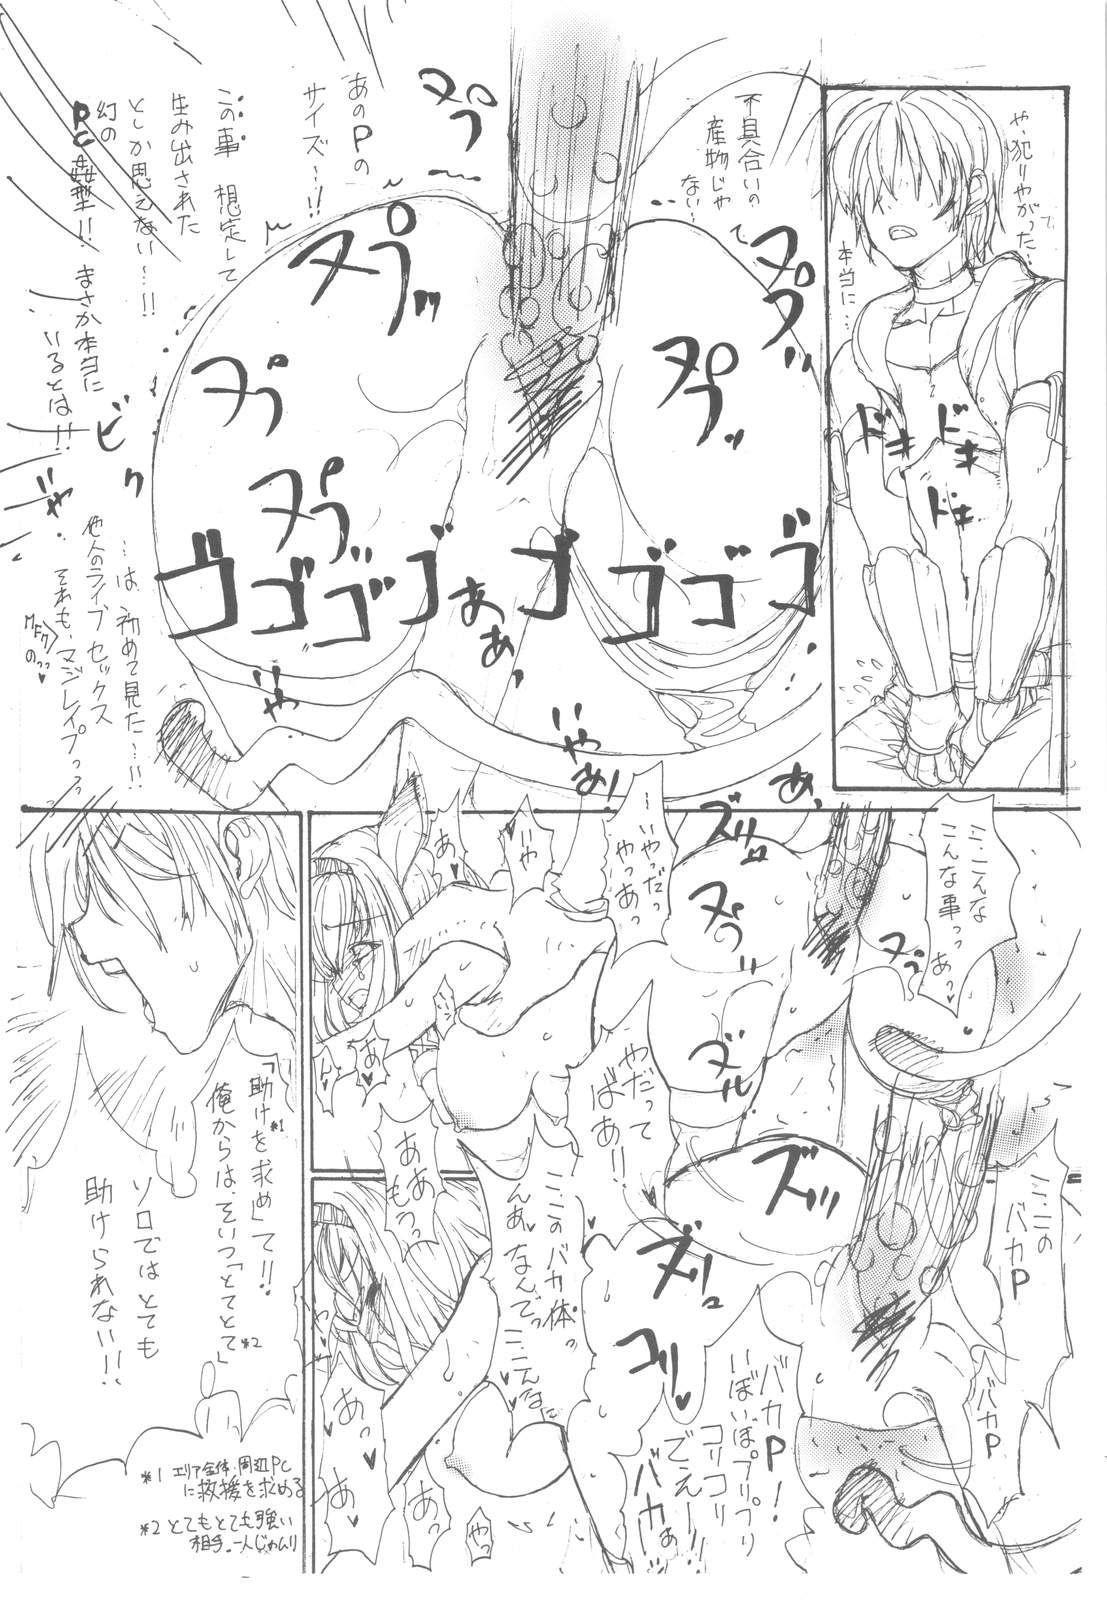 や、犯りやがった…
本当に…
ドキ
ドキ
ドキ
不具合いの
産物じゃ
ない〜
あのPの
サイズ〜!!
この事 想定して
生み出された
としか思えない〜!!
幻の
PC姦型!! まさか本当に
いるとは!!
…は 初めて見た…!!
他人のライブセックス
それも、マジレイプっっっ
ヌプッ
ヌプッ
ヌプッ
ヌプッ
ヌプッ
ヌプッ
ビク
ゴゴゴゴゴゴゴゴ
あぁぁ
いやぁ
ミ、こんな
こんな事っっ あっ♥
〜いやっだっ
やっあっ
いや
あっ♥
ズリュ
ヌプッ
ヌプッ
ズル
やだって
ばあ!!
あ♥
ん♥
ああっ
もうっ
ミ、このバカ体っ
んあ♥ なんでっ ミ、こんなに
ミ、この
バカP
バカP
バカP!
いぼいぼプリプリ
コリコリ
でえー
バカぁ
ズッ
ズリュ
コリッ♥
あっ♥
あっ♥
あっ
やっ
「助けを*1求め」て!!
俺からは、そいつ「とてとて」*2
ソロではとても
助けられない!!
*1 エリア全体・周辺PC
に救援を求める
*2 とてもとても強い
相手。一人じゃムリ